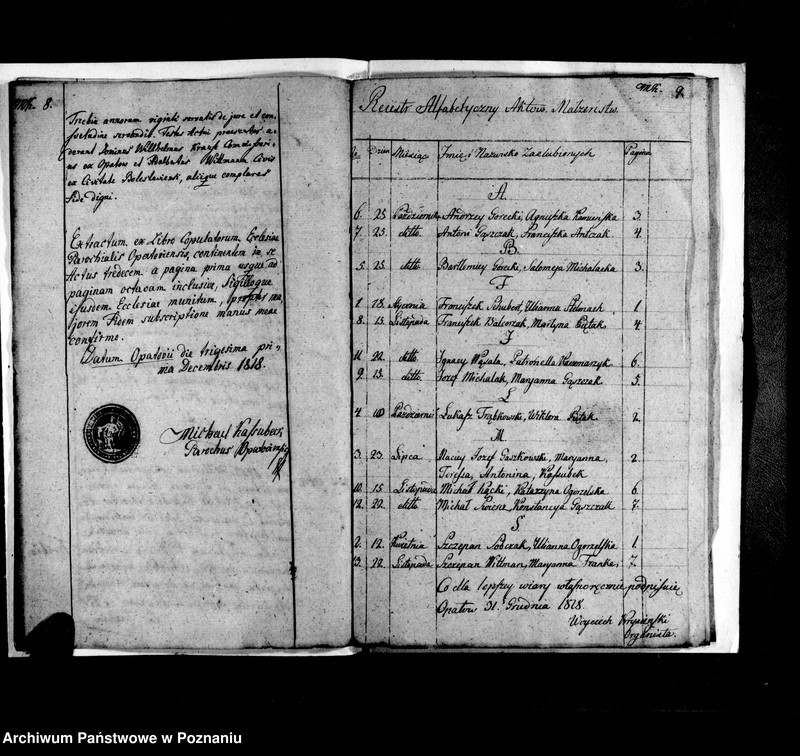 Mk. 8.
Trebia annorum viginti servatis de jure et con,
svetudine servandis. Testes Actui praesentes a,
derant Dominus Willhelmus Krauze
us ex Opatow et Wittmann Civis
ex Civitate Boleslaviensi, aliique complures
fide digni.
Extractum, ex Libro Copulatorum, Ecclesiae
Parochialis Opatoviensis, continentem in se
Actus tredecem a pagina prima usque ad
paginam octavam inclusive, Sigilloque
ejusdem Ecclesiae munitum, propter ma,
jorem Fidem subscriptione manus meae
confirmo.
Datum Opatovii die trigesima pri,
ma Decembris 1818.
Michael Kassubeck
Parochus
Mk. 9.
Reiestr Alfabetyczny Aktow Małżenstw
Dzien Miesiąc Imię i Nazwisko Zaslubionych Pagina
A.
6. 23. Pazdziernik Andrzey Gorecki, Agnyszka Kaminska 3.
7. 23. ditto Antoni Gąszczak, Francyszka Antczak 4.
B.
5. 23. ditto Bartlomiey Gorecki, Salomeja Michalaska 3.
F
1. 18. Stycznia Francyszek Schubert, Ulianna Stelmach 1.
8. 13. Listopada Francyszek Balcerzak, Martyna Piętak 4
I
11. 22. ditto Ignacy Wąsala, Petronella Kaczmarzyk 6.
9. 13. ditto Jozef Michalak, Maryanna Gąszczak 5.
L
4. 10 Pazdziernik Łukasz Trąbkowski, Wiktora Piętak 2.
M.
3. 23. Lipca Maciey Jozef Gaszkowski, Maryanna, 2.
Teressa, Antonina, Kassubek
10. 15. Listopada Michał Kącki, Katarzyna Ogorzelska 6.
12. 22. ditto Michał Konstancya Gąszczak 7.
S
2. 12. Kwietnia Szczepan Sobczak, Ulianna Ogorzelska 1.
13. 22. Listopada Szczepan Wittman, Maryanna Franke, 7.
Co dla lepszey wiary własnoręcznie podpisuię
Opatow 31. Grudnia 1818.
Woyciech Krysinski
Organista.
Archiwum Państwowe w Poznaniu